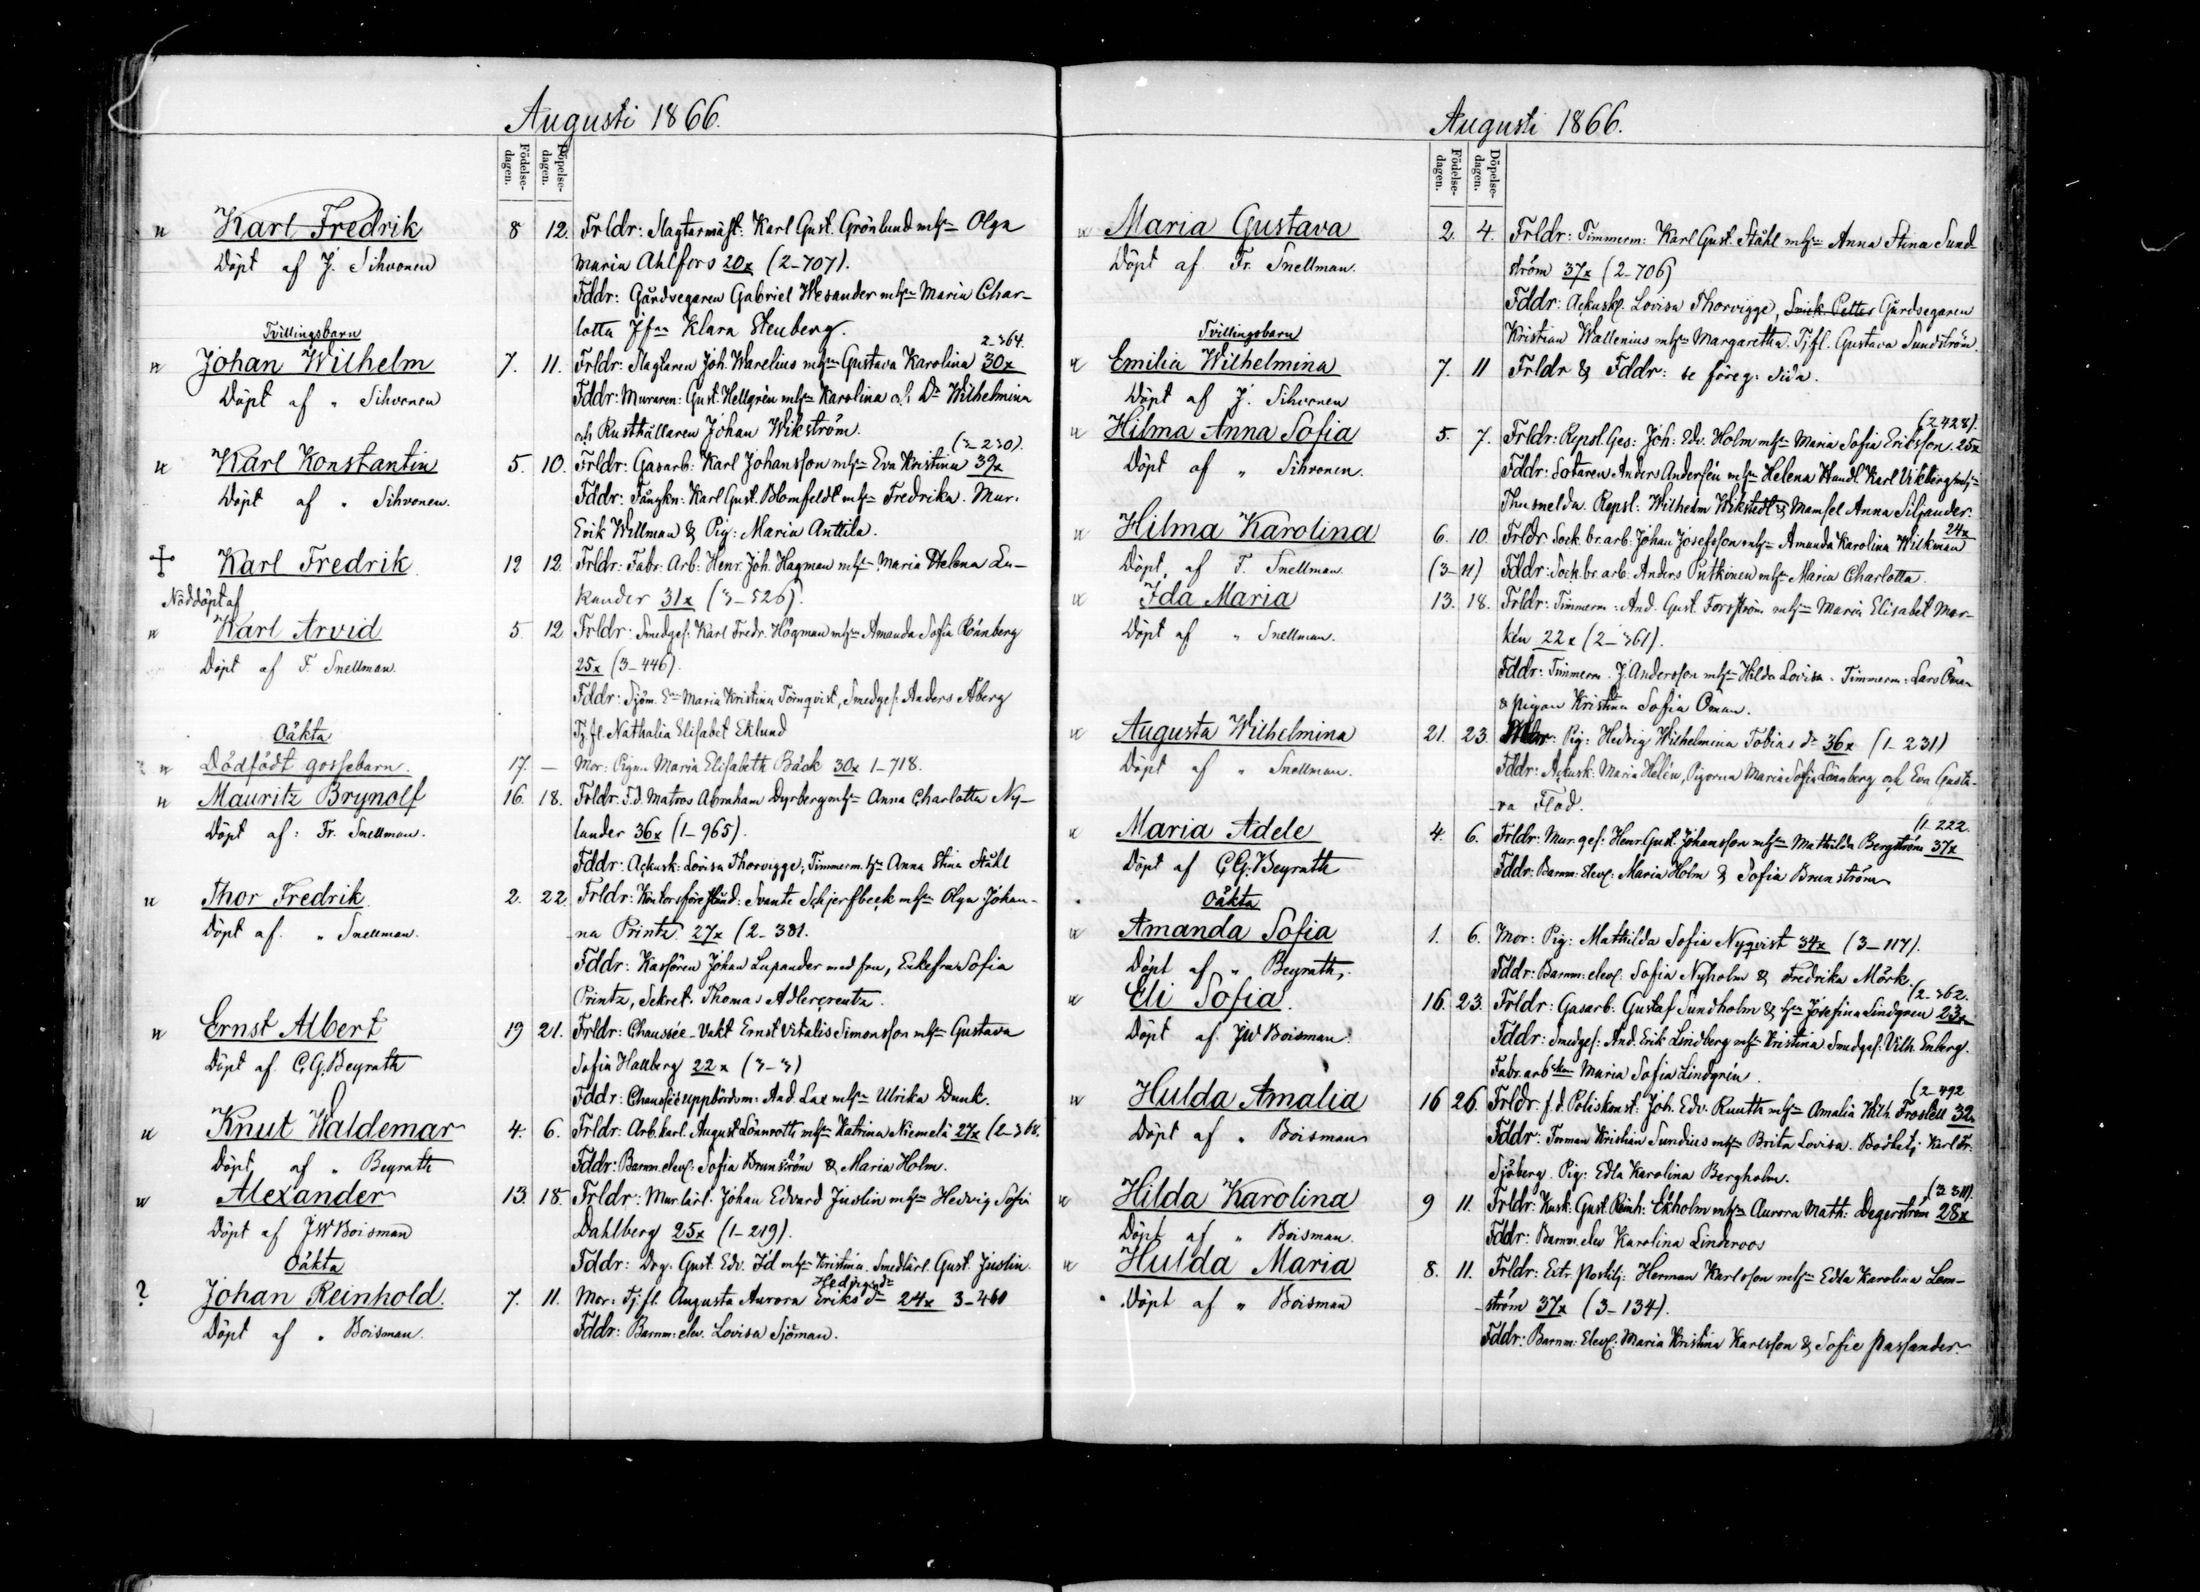 Augusti 1866.
Födelse-dagen. Döpelse-dagen.
n Karl Fredrik 8 12. Frldr: Slagtarmäst: Karl Gust. Grönlund mhn Olga
Döpt af J. Sihvonen Maria Ahlfors 20x (2-707).
Fddr: Gårdsegaren Gabriel Wesander mhn Maria Char-
lotta Jfrn Klara Stenberg.
Tvillingsbarn 2-364.
n Johan Wilhelm 7. 11. Frldr: Slagtaren Joh. Warelius mhn Gustava Karolina 30x
Döpt af „ Sihvonen Fddr: Muraren: Gust. Hellgrén mhn Karolina och Dr Wilhelmina
och Rusthållaren Johan Wikström.
(3-230).
n Karl Konstantin 5. 10. Frldr: Gasarb: Karl Johansson mhn Eva Kristina 39x
Döpt af „ Sihvonen. Fddr: Fångkn: Karl Gust. Blomfeldt mhn Fredrika. Mur.
Erik Wellman & Pig: Maria Anttila.
Karl Fredrik 12 12. Frldr: Fabr: Arb: Henr. Joh. Hagman mhn Maria Helena Lu-
Nöddöpt af kander 31x (3-526).
n Karl Arvid 5. 12 Frldr: Smedges: Karl Fredr. Högman mhn Amanda Sofia Rönnberg
Döpt af F. Snellman. 25x (3-446).
Fddr: Sjöm. En Maria Kristina Törnqvist, Smedges: Anders Åberg
Tj.fl. Nathalia Elisabet Eklund
Oäkta
n Dödfödt gossebarn. 17. — Mor: Pigan Maria Elisabeth Bäck 30x 1-718.
n Mauritz Brynolf 16. 18. Frldr: F.d. Matros Abraham Dyrberg mhn Anna Charlotta Ny-
Döpt af: Fr. Snellman. lander 36x (1-965).
Fddr: Ackusk: Lovisa Thorvigge, Timmerm. hn Anna Stina Ståhl
n Thor Fredrik. 2. 22. Frldr: Kontorsförest: Svante Schjerfbeck mhn Olga Johan-
Döpt af. „ Snellman. na Printz 27x (2-381.
Fddr: Kassören Johan Lupander med fru, Enkefru Sofia
Printz, Sekret. Thomas Adlercreutz.
n Ernst Albert 19 21. Frldr: Chaussée-Vakt Ernst Vitalis Simonsson mhn Gustava
Döpt af C.G. Beyrath Sofia Hallberg 22x (3-3)
Fddr: Chaussée uppbördsm: And. Lax mhn Ulrika Dunk.
n Knut Waldemar 4. 6. Frldr: Arb. karl. August Lönnroth mhn Katrina Niemelä 27x (2-368.
Döpt af „ Beyrath Fddr: Barnm. elev: Sofia Brunström & Maria Holm.
n Alexander 13. 18. Frldr: Mur lärl. Johan Edvard Juslin mhn Hedvig Sofia
Döpt af J W Boisman Dahlberg 25x (1-219).
Oäkta Fddr: Drg. Gust. Edv. Id mhn Kristina. Smedlärl. Gust. Juslin.
? Johan Reinhold. 7. 11. Mor: Tj. fl. Augusta Aurora Eriks dr 24x 3-460
Döpt af „ Boisman. Fddr: Barnm: elev. Lovisa Sjöman.
Augusti 1866.
Födelse-dagen. Döpelse-dagen.
n Maria Gustava 2. 4. Frldr: Timmerm: Karl Gust. Ståhl mhn Anna Stina Sund-
Döpt af Fr. Snellman. ström 37x (2-706)
Fddr: Ackusk: Lovisa Thorvigge, Snick. Petter Gårdsegaren
Kristian Wallenius mhn Margaretha. Tj.fl. Gustava Sundström.
Tvillingsbarn
n Emilia Wilhelmina 7. 11 Frldr & Fddr: se föreg: sida.
Döpt af J. Sihvonen
(2-428).
n Hilma Anna Sofia 5. 7. Frldr: Repsl. Ges: Joh: Edv. Holm mhn Maria Sofia Eriksson. 25x
Döpt af „ Sihvonen. Fddr: Sotaren Anders Andersén mhn Helena Handl. Karl Vikberg mhn
Thusnelda. Repsl: Wilhelm Wikstedt & Mamsel Anna Siljander.
24x
n Hilma Karolina 6. 10. Frldr: Sock. br. arb. Johan Josefsson mhn Amanda Karolina Wikman
Döpt af F. Snellman. (3-11) Fddr: Sock. br. arb. Anders Putkinen mhn Maria Charlotta.
n Ida Maria 13. 18. Frldr: Timmerm: And. Gust. Forsström mhn Maria Elisabet Mar-
Döpt af „ Snellman. kén 22x (2-361).
Fddr: Timmerm. J. Andersson mhn Hilda Lovisa. Timmerm: Lars Öman
& pigan Kristina Sofia Öman.
n Augusta Wilhelmina 21. 23. Mor: Pig: Hedvig Wilhelmina Tobias dr 36x (1-231)
Döpt af „ Snellman. Fddr: Ackusk: Maria Helén, Pigorna Maria Sofia Lönnberg och Eva Gusta-
va Flod.
(1-222.
n Maria Adele 4. 6. Frldr: Mur. ges: Henr. Gust. Johansson mhn Mathilda Bergström 37x
Döpt af C.G. Beyrath Fddr: Barnm: Elev: Maria Holm & Sofia Brunström
Oäkta
n Amanda Sofia 1. 6. Mor: Pig: Mathilda Sofia Nyqvist 34x (3-117).
Döpt af „ Beyrath. Fddr: Barnm: elev: Sofia Nyholm & Fredrika Mörk.
(2-362.
n Eli Sofia. 16. 23. Frldr: Gasarb: Gustaf Sundholm & hn Josefina Lindgren 23x
Döpt af. J W Boisman. Fddr: Smedges: And. Erik Lindberg mhn Kristina Smedges: Vilh. Enberg.
Fabr. arbskan Maria Sofia Lindgrén.
(2-492
n Hulda Amalia 16 26. Frldr. f.d. Poliskonst: Joh. Edv. Ruuth mhn Amalia Wilh. Frosell 32x
Döpt af „ Boisman Fddr: Forman Kristian Sundius mhn Brita Lovisa. Bodbetj. Karl Fr.
Sjöberg. Pig: Edla Karolina Bergholm.
(3-311).
n Hilda Karolina 9 11. Frldr: Kusk: Gust. Reinh: Ekholm mhn Aurora Math: Degerström 28x
Döpt af „ Boisman. Fddr: Barnm. elev Karolina Linderoos
n Hulda Maria 8. 11. Frldr: Extr. Postilj: Herman Karlsson mhn Edla Karolina Lem-
Döpt af „ Boisman ström 37x (3-134).
Fddr: Barnm: Elev: Maria Kristina Karlsson & Sofie Passander.